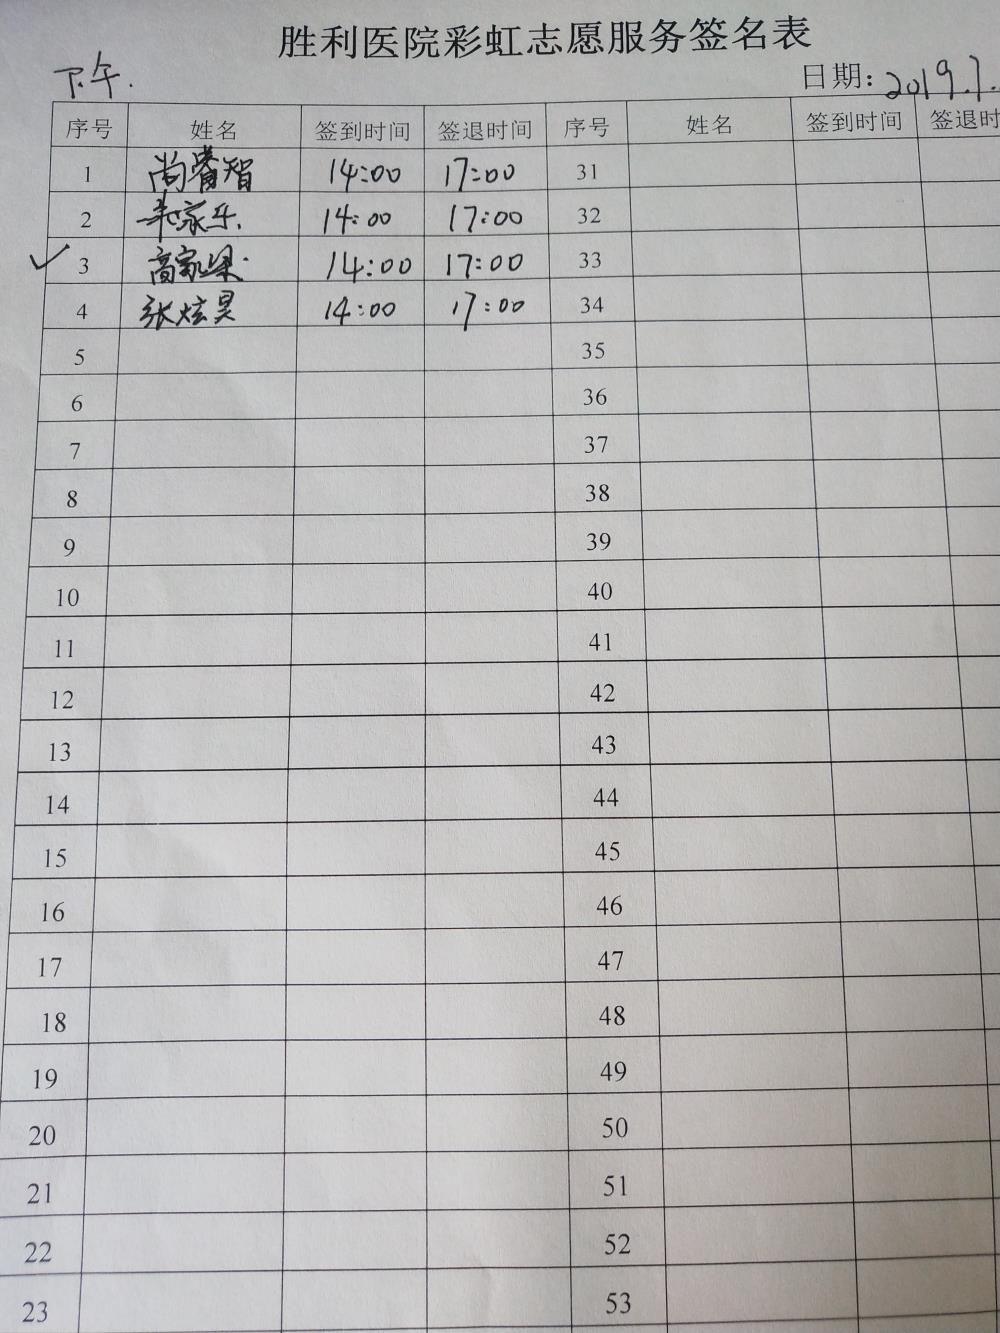 胜利医院彩虹志愿服务签名表
下午.
日期: 2019.7.
序号 姓名 签到时间 签退时间 序号 姓名 签到时间 签退时
1 尚睿智 14:00 17:00 31
2 家乐. 14:00 17:00 32
✓ 3 高家梁. 14:00 17:00 33
4 张炫昊 14:00 17:00 34
5 35
6 36
7 37
8 38
9 39
10 40
11 41
12 42
13 43
14 44
15 45
16 46
17 47
18 48
19 49
20 50
21 51
22 52
23 53